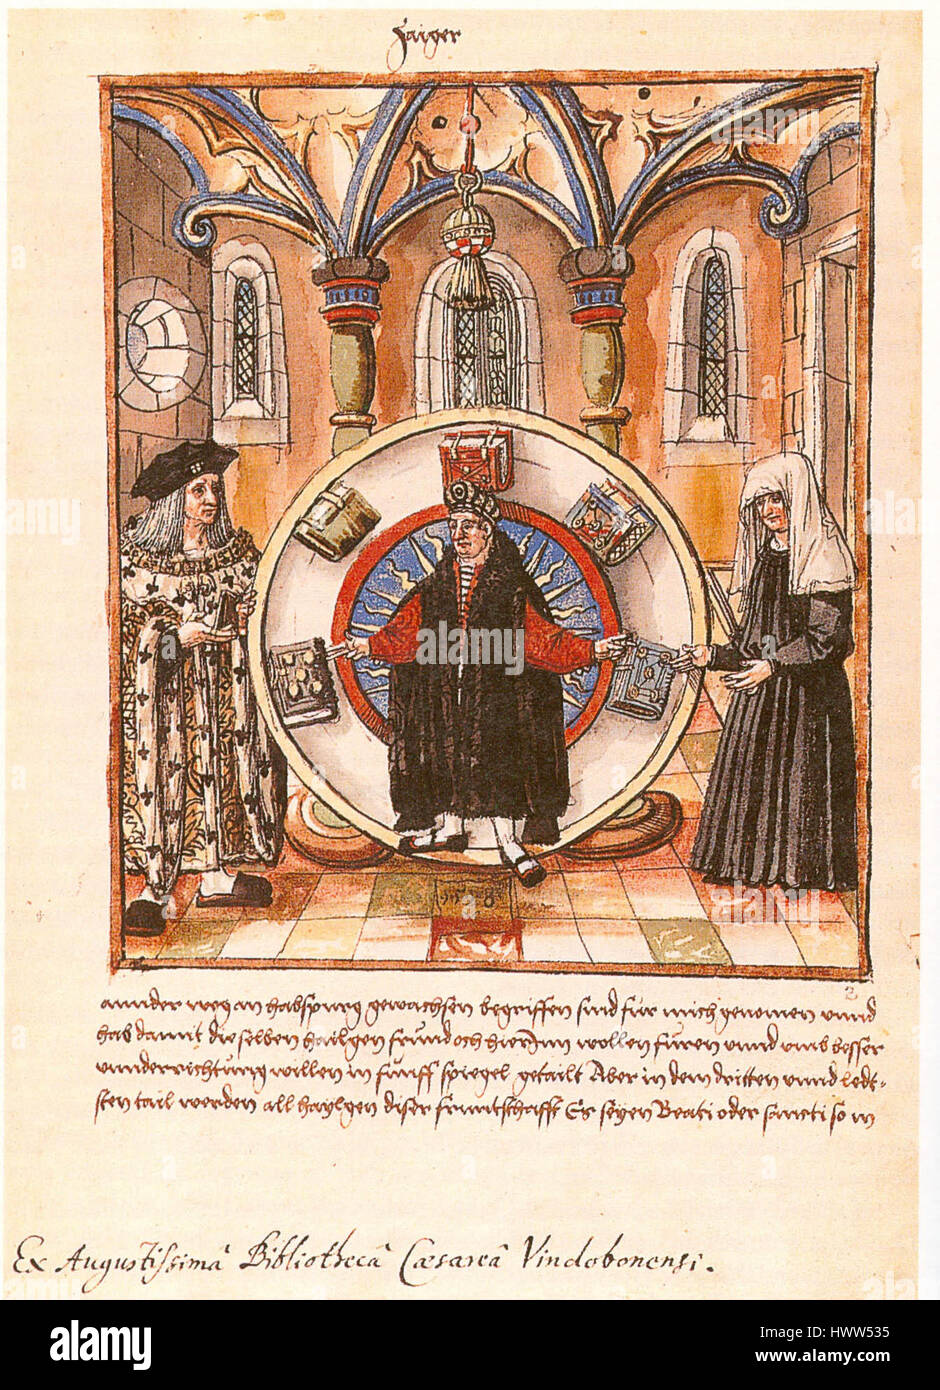 Zaiger
1518
2
annder weg an habspurg gewachsen begriffen sind für mich genomen vnnd
hab damit dieselben hailgen freund och hierJnn wollen füren vnnd vmb besser
vnnderrichtung willen in fünff spiegel getailt Aber in dem dritten vnnd ledt-
sten tail werden all haylgen diser fruntschafft Es seyen Beati oder sancti so in
Ex Augustissimâ Bibliothecâ Cæsareâ Vindobonensi.
alamy
alamy stock photo
HWW535
www.alamy.com